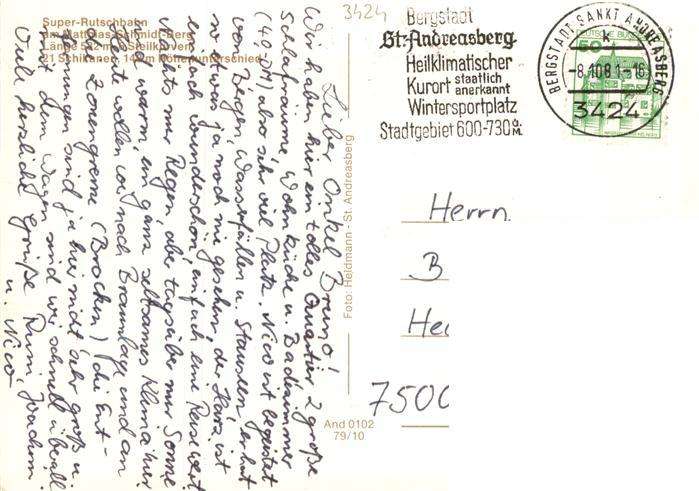 Super-Rutschbahn
am Matthias-Schmidt-Berg
Länge 552 m, 9 Steilkurven
21 Schikanen, 140 m Höhenunterschied
3424
Bergstadt
St. Andreasberg
Heilklimatischer
Kurort staatlich anerkannt
Wintersportplatz
Stadtgebiet 600-730 ü. M.
BERGSTADT SANKT ANDREASBERG
k
-8.10.81-16
3424
DEUTSCHE BUNDESPOST
50
Lieber Onkel Bruno!
Wir haben hier ein tolles Quartier 2 große
Schlafräume, Wohnküche u. Badezimmer
(40,- DM) also sehr viel Platz. Nico ist begeistert
von Bergen, Wasserfällen u. Stauseen, er hat
so etwas ja noch nie gesehen, der Harz ist
einfach wunderschön, einfach eine Reise wert
Nachts nur Regen, aber tagsüber nur Sonne
und warm, ein ganz seltsames Klima hier.
Heute wollen wir nach Braunlage und an
die Zonengrenze (Brocken) die Ent-
fernungen sind ja hier nicht sehr groß u.
mit dem Wagen sind wir schnell überall
Viele herzliche Grüße Joachim
u. Nico
Foto: Heidmann - St. Andreasberg
And 0102
79/10
Herrn
B
He
7500